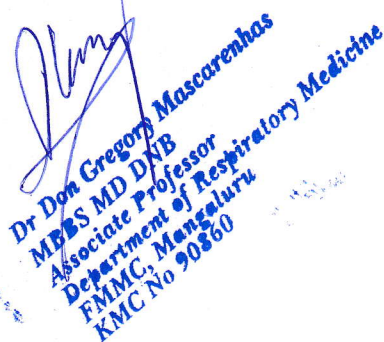 Dr Don Gregory Mascarenhas
MBBS MD DNB
Associate Professor
Department of Respiratory Medicine
FMMC, Mangaluru
KMC No 90860